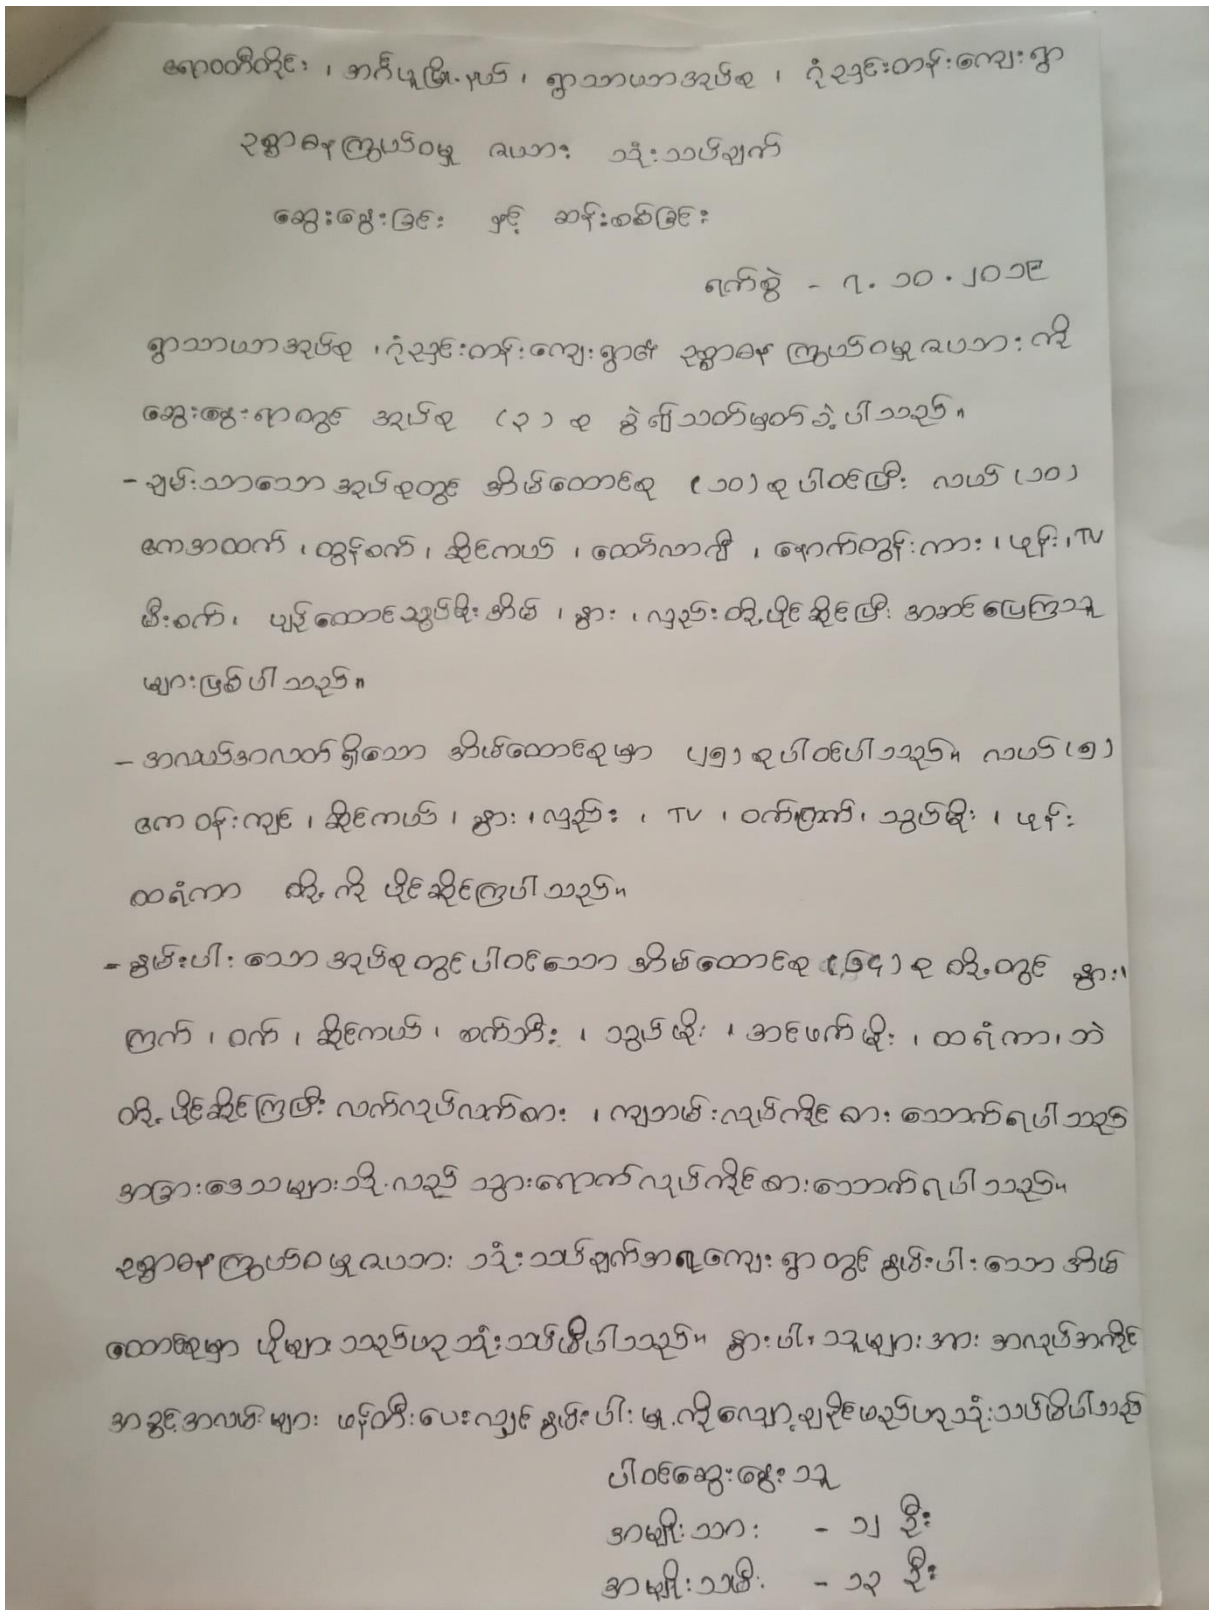 ဧရာဝတီတိုင်း ၊ အင်္ဂပူမြို့နယ် ၊ ရွာသာယာအုပ်စု ၊ ဂုံညှင်းတန်းကျေးရွာ
ဥစ္စာဓနကြွယ်ဝမှု ဇယား သုံးသပ်ချက်
ဆွေးနွေးခြင်း နှင့် ဆန်းစစ်ခြင်း
ရက်စွဲ - ၇. ၁၀ . ၂၀၁၉
ရွာသာယာအုပ်စု ၊ ဂုံညှင်းတန်းကျေးရွာ၏ ဥစ္စာဓန ကြွယ်ဝမှုဇယားကို
ဆွေးနွေးရာတွင် အုပ်စု (၃) စု ခွဲ၍သတ်မှတ်ခဲ့ပါသည်။
- ချမ်းသာသော အုပ်စုတွင် အိမ်ထောင်စု (၁၀) စု ပါဝင်ပြီး လယ် (၁၀)
ဧကအထက် ၊ ထွန်စက် ၊ ဆိုင်ကယ် ၊ ထော်လာဂျီ ၊ နောက်တွန်းကား ၊ ဖုန်း ၊ TV
မီးစက် ၊ ပျဉ်ထောင်သွပ်မိုးအိမ် ၊ နွား ၊ လှည်းတို့ပိုင်ဆိုင်ပြီး အဆင်ပြေကြသူ
များဖြစ်ပါသည်။
- အလယ်အလတ်ရှိသော အိမ်ထောင်စုမှာ (၂၅) စုပါဝင်ပါသည်။ လယ် (၅)
ဧက ဝန်းကျင် ၊ ဆိုင်ကယ် ၊ နွား ၊ လှည်း ၊ TV ၊ ဝက်၊ကြက် ၊ သွပ်မိုး ၊ ဖုန်း
ထရံကာ တို့ကို ပိုင်ဆိုင်ကြပါသည်။
- နွမ်းပါးသော အုပ်စုတွင်ပါဝင်သော အိမ်ထောင်စု (၆၄) စု တို့တွင် နွား၊
ကြက် ၊ ဝက် ၊ ဆိုင်ကယ် ၊ စက်ဘီး ၊ သွပ်မိုး ၊ အင်ဖက်မိုး ၊ ထရံကာ၊ ဘဲ
တို့ပိုင်ဆိုင်ကြပြီး လက်လုပ်လက်စား ၊ ကျဘမ်းလုပ်ကိုင်စားသောက်ရပါသည်
အခြားဒေသများသို့လည် သွားရောက်လုပ်ကိုင်စားသောက်ရပါသည်။
ဥစ္စာဓနကြွယ်ဝမှုဇယား သုံးသပ်ချက်အရကျေးရွာတွင် နွမ်းပါးသောအိမ်
ထောင်စုမှာ ပိုများသည်ဟုသုံးသပ်မိပါသည်။ နွားပါးသူများအား အလုပ်အကိုင်
အခွင့်အလမ်းများ ဖန်တီးပေးလျှင်နွမ်းပါးမှုကိုလျော့ချနိုင်မည်ဟုသုံးသပ်မိပါသည်
ပါဝင်ဆွေးနွေးသူ
အမျိုးသား - ၁၂ ဦး
အမျိုးသမီး - ၁၃ ဦး